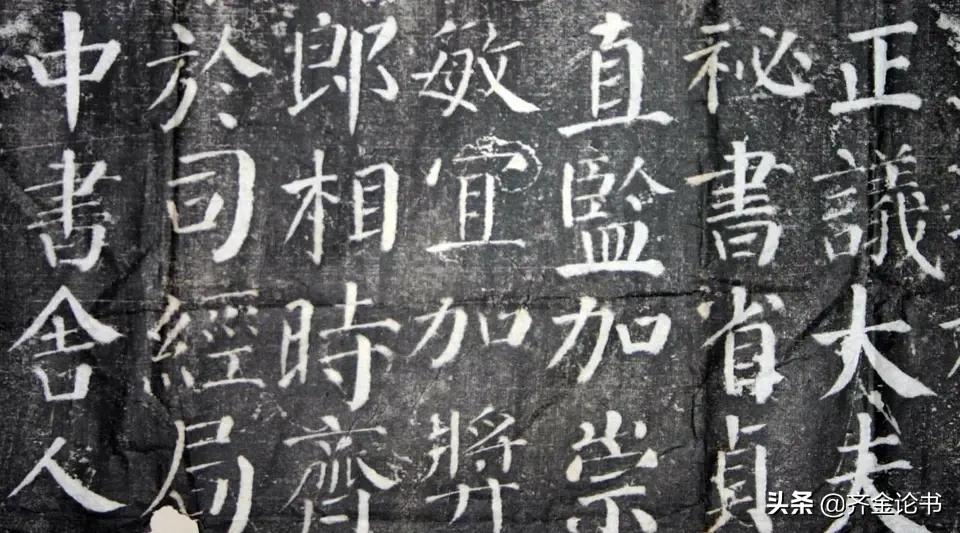 正議大夫
祕書省貞
直監加崇
敏宜加獎
郎相時齊
於司經局
中書舍人
头条 @齐金论书